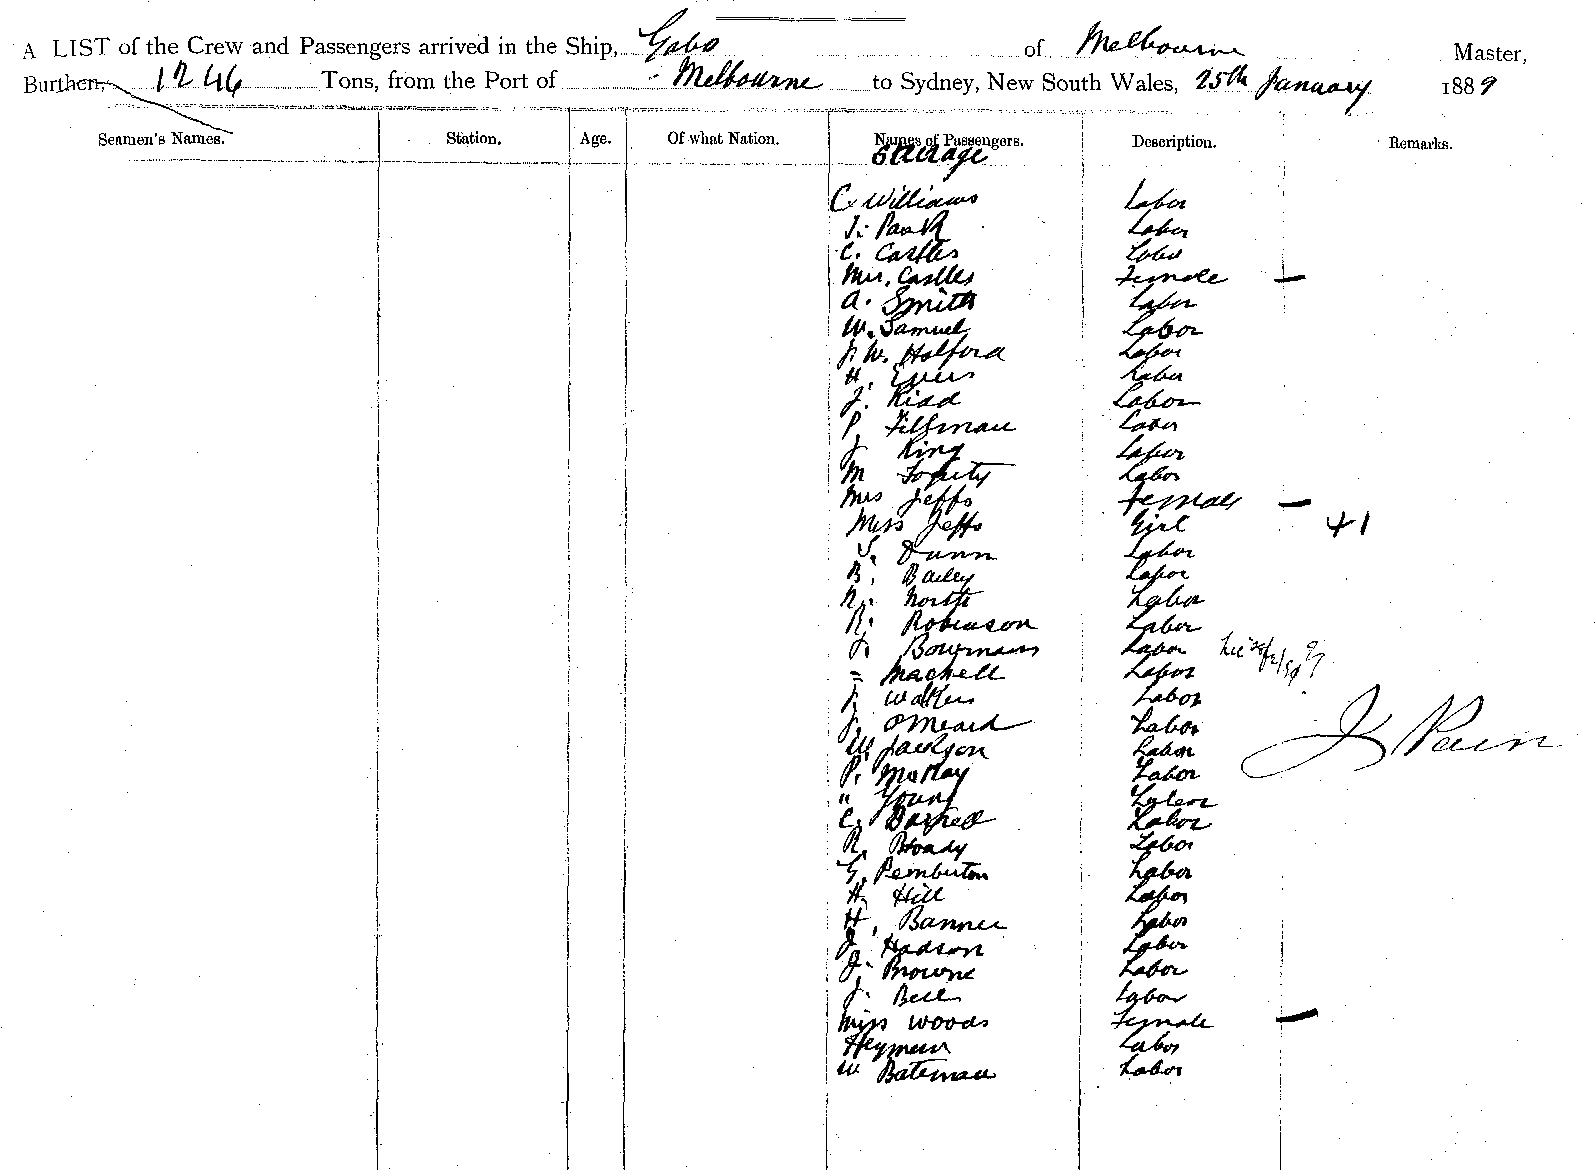 A LIST of the Crew and Passengers arrived in the Ship, Gabo of Melbourne Master,
Burthen, 1246 Tons, from the Port of Melbourne to Sydney, New South Wales, 25th January 1889
Seamen's Names. Station. Age. Of what Nation. Names of Passengers. Description. Remarks.
Steerage
C. Williams Labor
J. Labor
C. Castles Labor
Mrs. Castles Female —
A. Smith Labor
W. Samuel Labor
J. W. Halford Labor
H. Evers Labor
J. Kidd Labor
P. Labor
J. King Labor
M Labor
Mrs Jeffs Female —
Miss Jeffs Girl +1
S. Dunn Labor
B. Bailey Labor
N. North Labor
R. Robinson Labor
J. Labor
= Machell Labor
J. Walters Labor
J. OMeara Labor
W. Jackson Labor
P. McKay Labor
" Young Labor
C. Labor
R. Labor
G. Pemberton Labor
H. Hill Labor
H. Banner Labor
J. Hadson Labor
J. Browne Labor
J. Bell Labor
Miss Woods Female —
Labor
W Bateman Labor